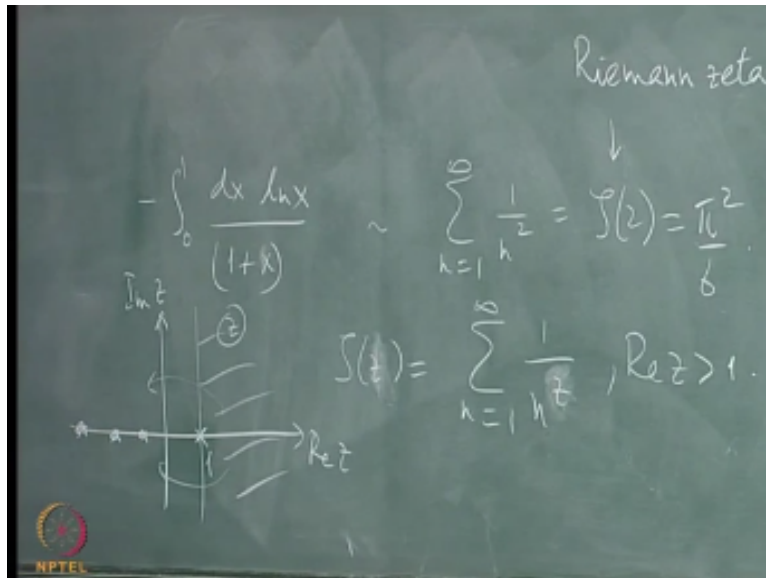 Riemann zeta
↓
- ∫₀¹ dx lnx / (1+x) ~ ∑_{n=1}^{∞} 1/n² = ζ(2) = π²/6 .
Im z
z
ζ(z) = ∑_{n=1}^{∞} 1/n^z , Re z > 1 .
1
Re z
NPTEL